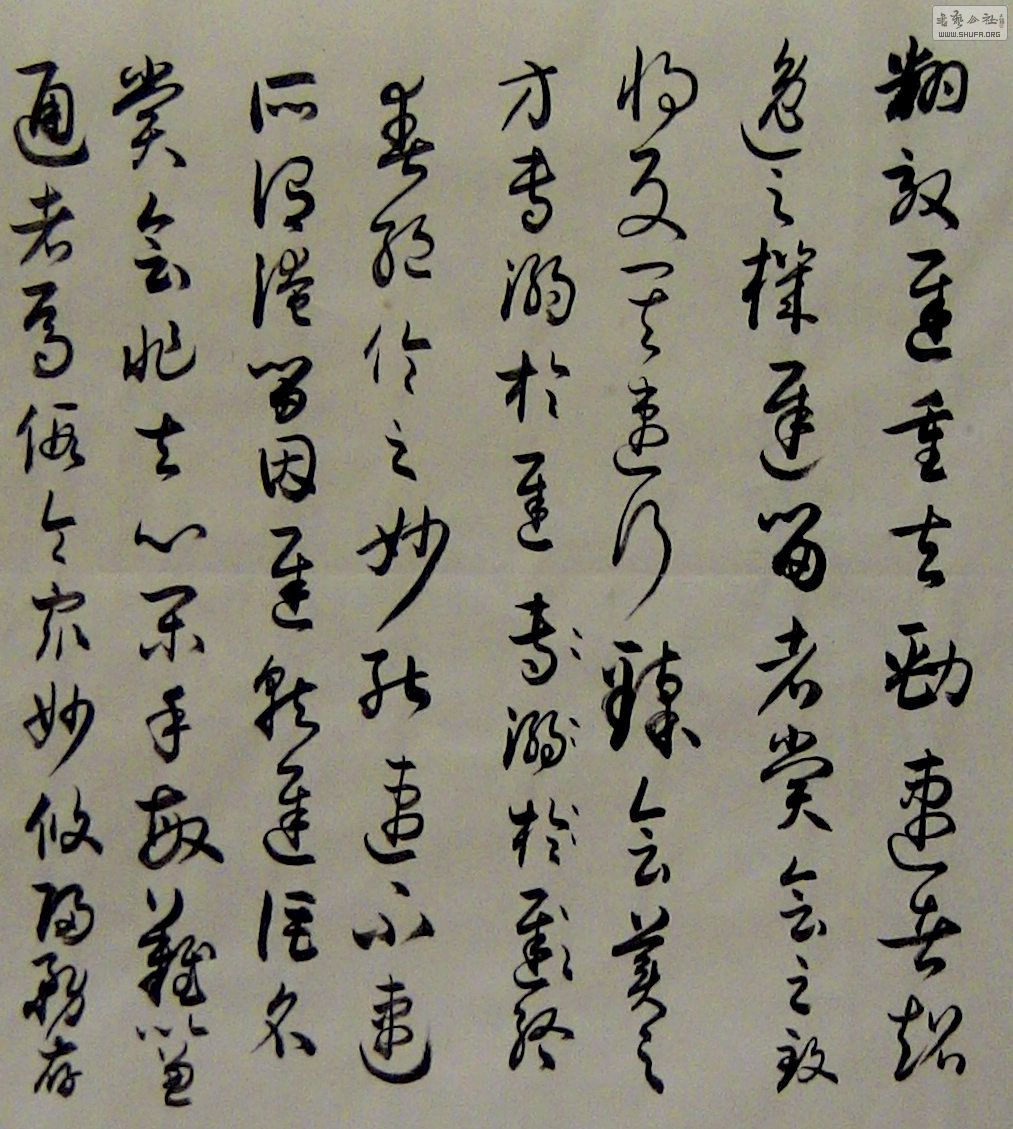 翻效遲重夫勁速者超
逸之機遲留者賞會之致
將反其速行臻會美之
方專溺於遲專溺於遲終
爽絕倫之妙能速不速
所謂淹留因遲就遲詎名
賞會非夫心閑手敏難以兼
通者焉假令眾妙攸歸務存
書藝公社
WWW.SHUFA.ORG